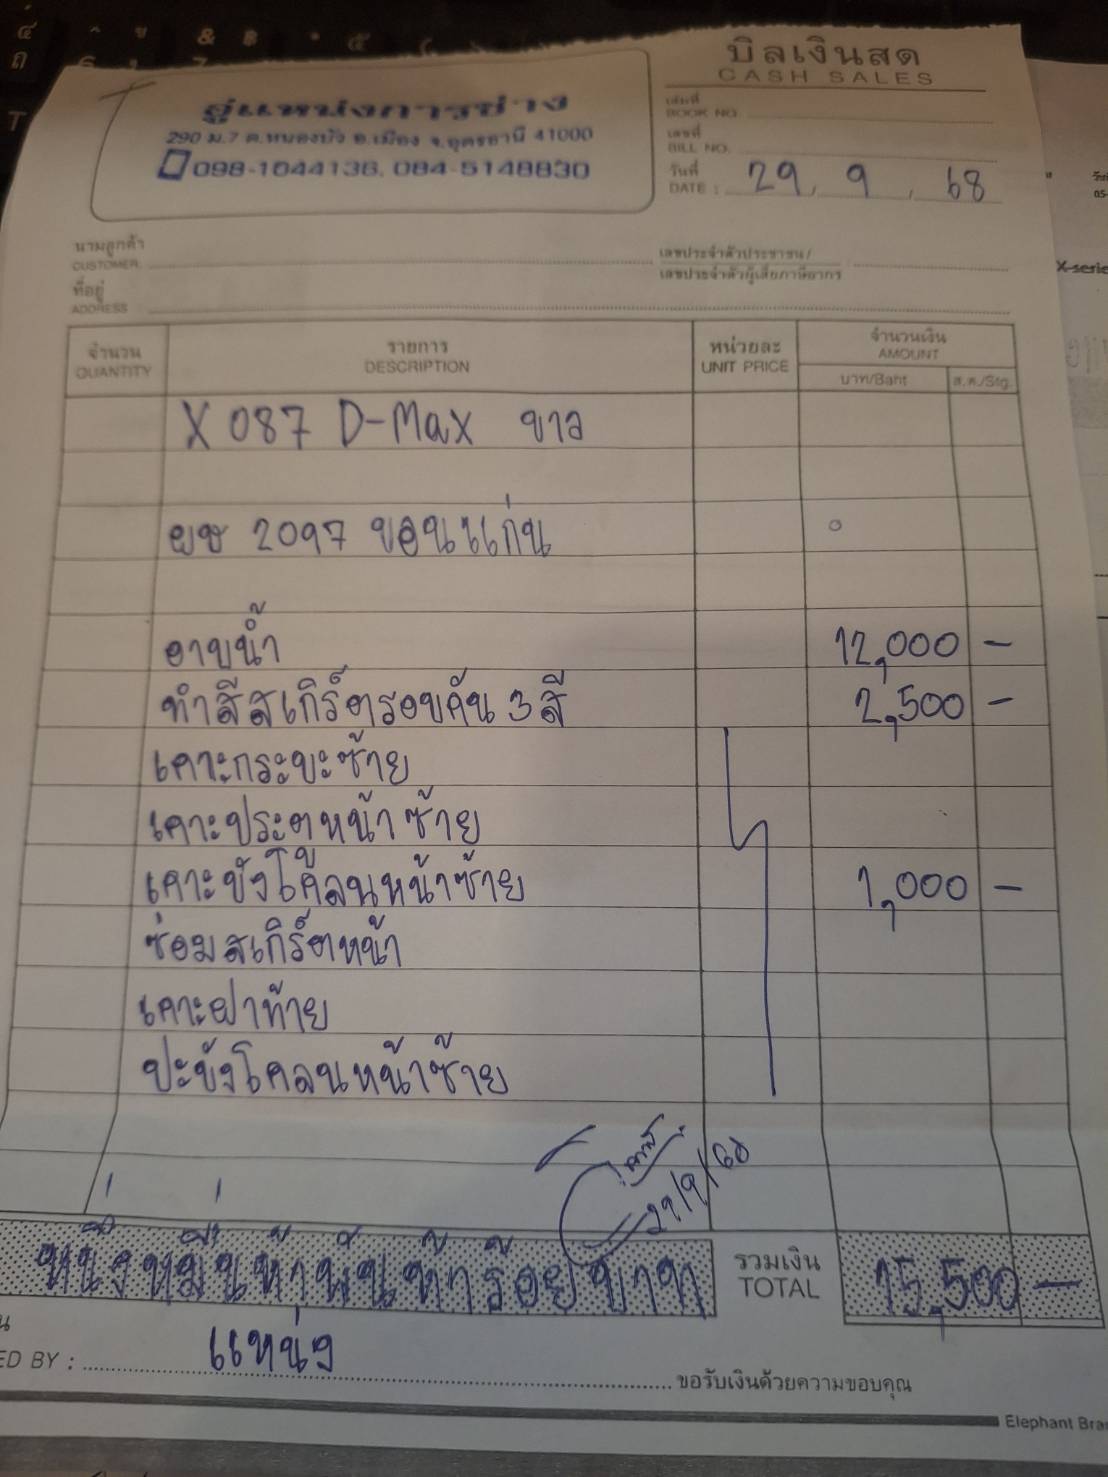 บิลเงินสด
CASH SALES
อู่แหน่งการช่าง
290 ม.7 ต.หนองบัว อ.เมือง จ.อุดรธานี 41000
098-1044136, 084-5148830
เล่มที่
BOOK NO.
เลขที่
BILL NO.
วันที่
DATE : 29, 9, 68
นามลูกค้า
CUSTOMER
เลขประจำตัวประชาชน/
เลขประจำตัวผู้เสียภาษีอากร
ที่อยู่
ADDRESS
จำนวน
QUANTITY
รายการ
DESCRIPTION
หน่วยละ
UNIT PRICE
จำนวนเงิน
AMOUNT
บาท/Baht ส.ต./Stg.
X 087 D-Max ขาว
ผช 2097 ขอนแก่น
อาบน้ำ 12,000 -
ทำสีสเกิร์ตรอบคัน 3 สี 2,500 -
เคาะกระบะซ้าย
เคาะประตหน้าซ้าย
เคาะบังโค้ลนหน้าซ้าย 1,000 -
ซ่อมสเกิร์ตหน้า
เคาะฝาท้าย
ปะบังโคลนหน้าซ้าย
29/9/68
หนึ่งหมื่นห้าพันห้าร้อยบาท
รวมเงิน
TOTAL
15,500 -
ED BY : แหน่ง
ขอรับเงินด้วยความขอบคุณ
Elephant Bra
X-serie